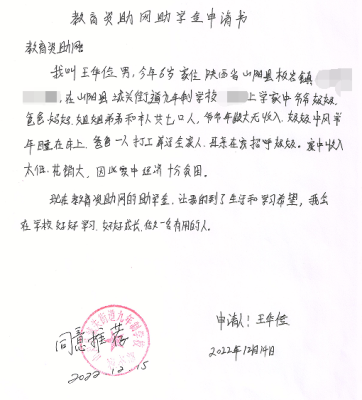 教育资助网助学金申请书
教育资助网:
我叫王华俭 男,今年6岁 家住 陕西省山阳县板岩镇
,在山阳县城关街道九年制学校 上学家中 爷爷 奶奶,
爸爸 妈妈, 姐姐 弟弟和本人共七口人, 爷爷年龄大无收入, 奶奶中风常
年睡在床上, 爸爸一人打工养活全家人, 妈妈在家招呼奶奶。家中收入
太低, 花销大, 因此家中经济十分贫困。
现在教育资助网的助学金, 让我看到了生活和学习希望, 我会
在学校好好学习, 好好成长, 做一名有用的人。
街道九年制学校
同意推荐
2022.12.15
申请人: 王华俭
2022年12月14日